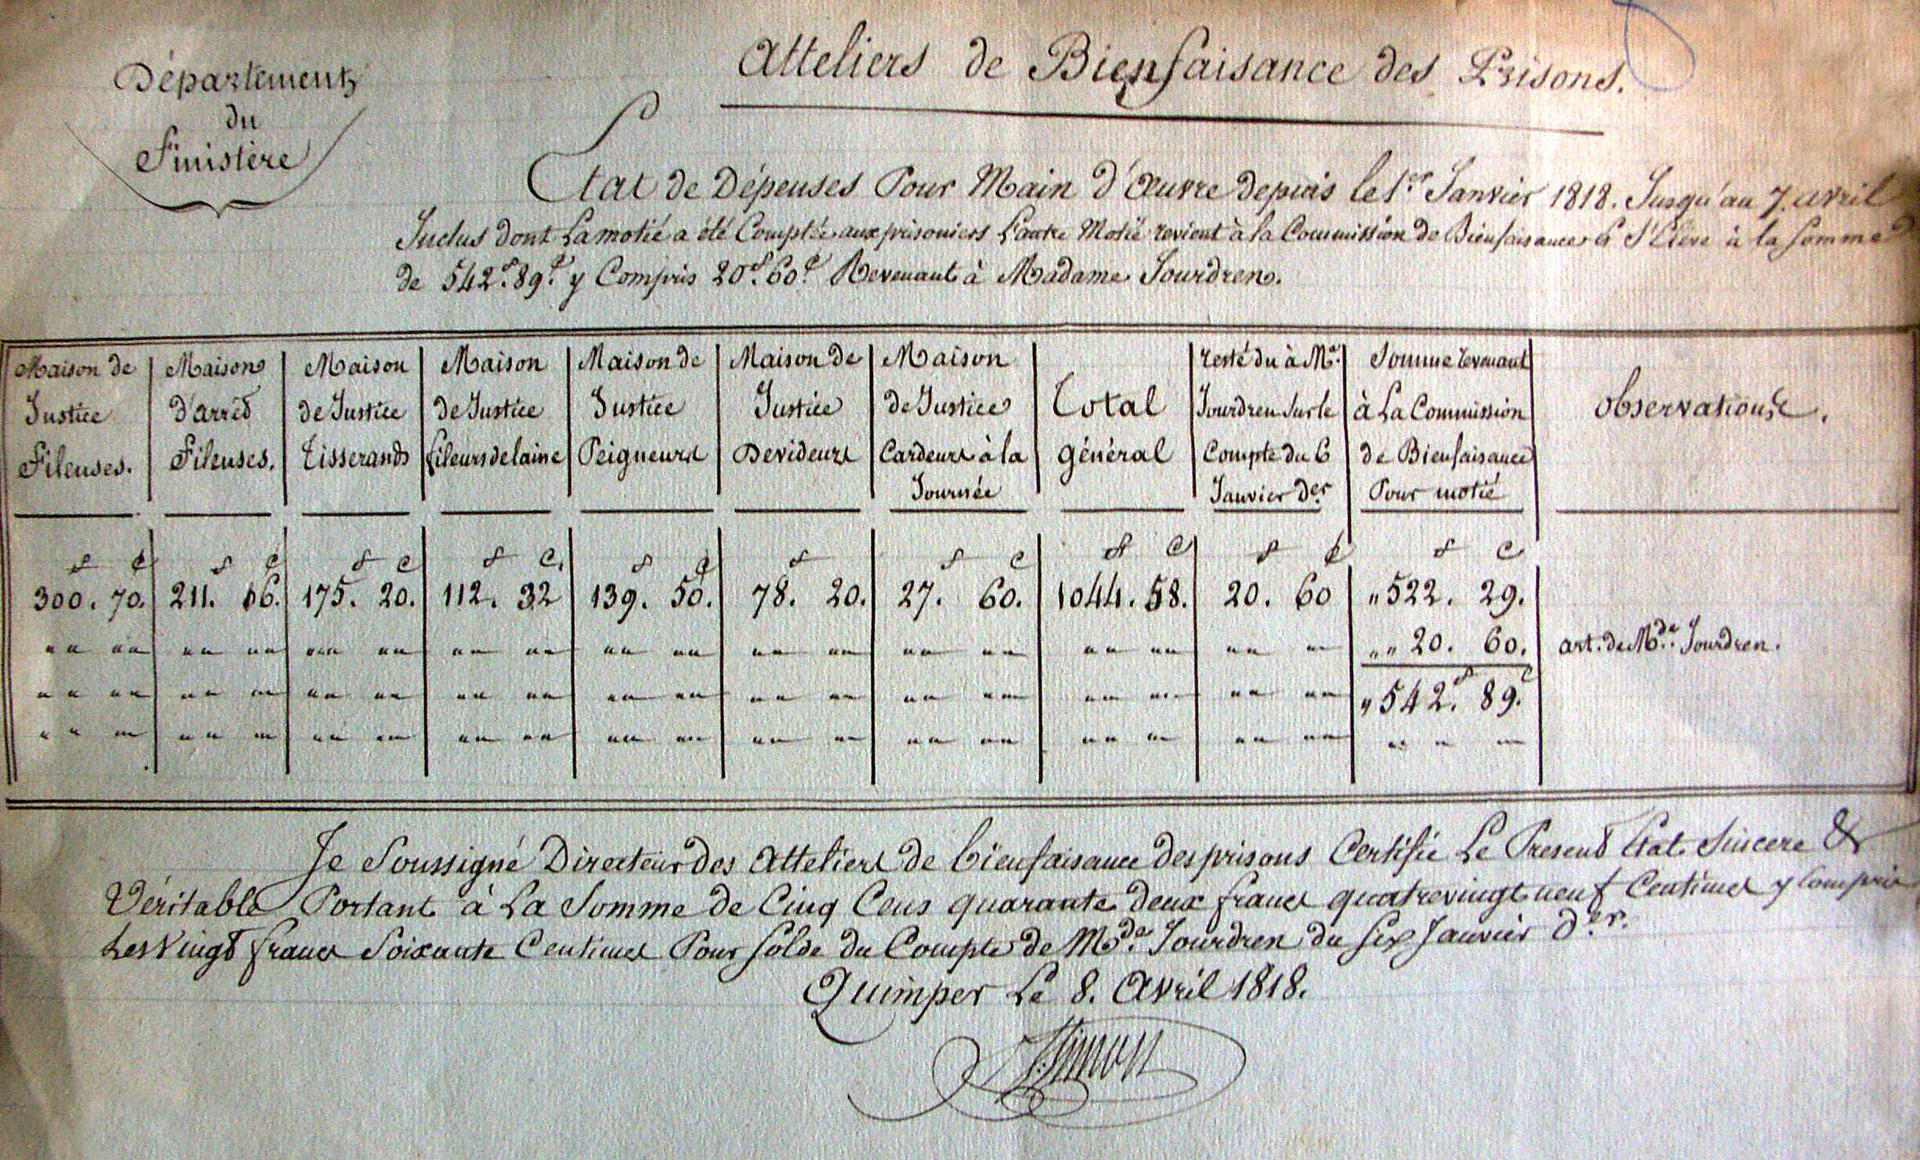 Département
du
Finistère
Atteliers de Bienfaisance des Prisons.
Etat de Dépenses Pour Main d'Œuvre depuis le 1er Janvier 1818. Jusqu'au 7. avril
Inclus dont La motié a été Comptée aux prisoniers L'autre Motié revient à la Commission de Bienfaisance & S'Elève à la Somme
de 542.f 89.c y Compris 20.f 60.c Revenant à Madame Jourdren.
Maison de Justice Fileuses.
Maison d'arrêt Fileuses.
Maison de Justice Tisserands
Maison de Justice fileurs de laine
Maison de Justice Peigneurs
Maison de Justice Devideurs
Maison de Justice Cardeurs à la Journée
Total général
resté du à Me. Jourdren sur le Compte du 6 Janvier der
Somme revenant à La Commission de Bienfaisance Pour motié
observations.
f c f c f c f c. f c f f c f c f c f c
300. 70. 211. 16. 175. 20. 112. 32 139. 50. 78. 20. 27. 60. 1044. 58. 20. 60 "522. 29.
"" 20. 60. art. de Mde. Jourdren.
" 542.f 89.c
Je Soussigné Directeur des Atteliers de bienfaisance des prisons Certifie Le Present Etat Sincere &
Véritable Portant à La Somme de Cinq Cens quarante deux francs quatrevingt neuf Centimes y Compris
Les Vingt francs Soixante Centimes Pour Solde du Compte de Mde Jourdren du six Janvier Der.
Quimper Le 8. Avril 1818.
Simon